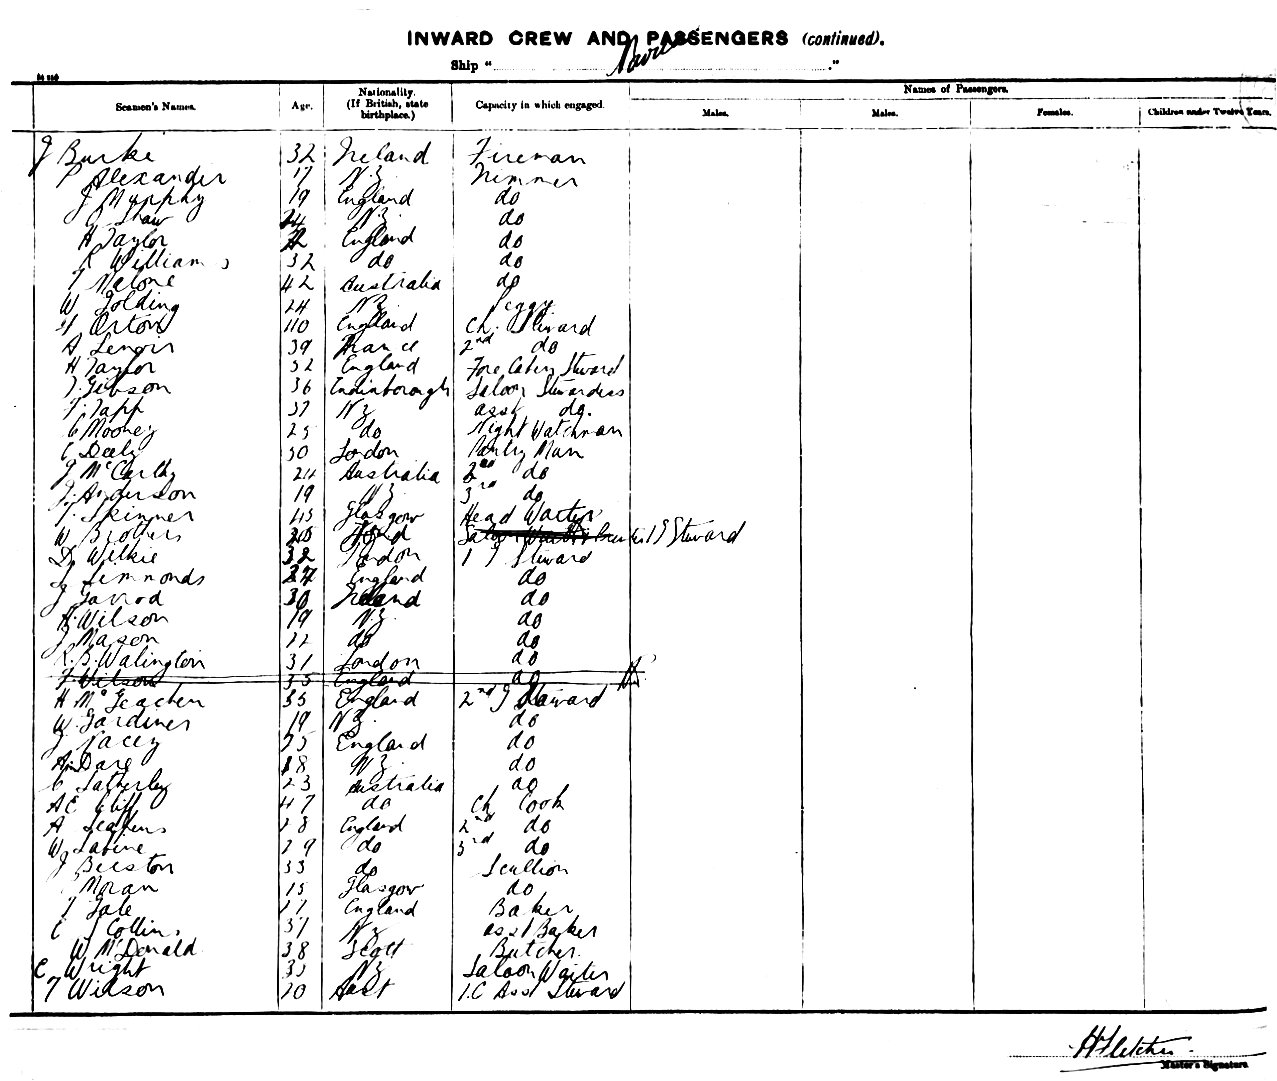 INWARD CREW AND PASSENGERS (continued).
Ship " "
Seamen's Names. Age. Nationality. (If British, state birthplace.) Capacity in which engaged. Names of Passengers.
Males. Males. Females. Children under Twelve Years.
J Burke 32 Ireland Fireman
P Alexander 17 N.Z. Trimmer
J Murphy 19 England do
Shaw 24 N.Z. do
H Taylor England do
R Williams 32 do do
T Malone 42 Australia do
W Golding 24 N.Z. Peggy
H Orton 40 England Ch. Steward
A Lenoir 39 France 2nd do
H Taylor 32 England Fore Cabin Steward
J. Gibson 36 Endinborough Saloon Stewardess
T. Tapp 37 N.Z. asst do.
C Mooney 25 do Night Watchman
C Deely 30 London Pantry Man
J McCarthy 24 Australia 2nd do
J. Anderson 19 N.Z. 3rd do
T. Skinner 45 Glasgow Head Waiter
W Brothers Steward
D Wilkie 32 London 1 S Steward
J Simmonds 27 England do
J Garrod 30 Ireland do
H. Wilson 19 N.Z. do
J Mason 22 do do
R. B. Walington 31 London do
Wilson 35 England do
H McGeachen 35 England 2nd S Steward
W. Gardiner 19 N.Z. do
J Pacey 25 England do
A Dare 18 N.Z. do
C Satherley 23 Australia do
A C Cliff 47 do Ch Cook
A 28 England 2nd do
W Sabine 29 do 3rd do
J Beeston 33 do Scullion
Moran 15 Glasgow do
T Gale 27 England Baker
C J Collins 31 N.Z. asst Baker
W McDonald 38 Scott Butcher.
C Wright 35 N.Z. Saloon Waiter
T Wilson 20 Aust 1.C Asst Steward
H Fletcher
Master's Signature